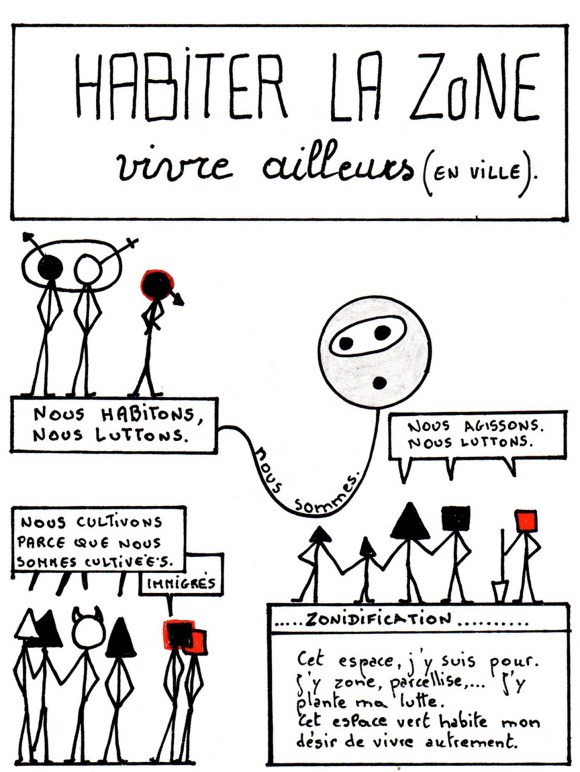 HABITER LA ZONE
vivre ailleurs (EN VILLE).
NOUS HABITONS,
NOUS LUTTONS.
nous sommes.
NOUS AGISSONS.
NOUS LUTTONS.
NOUS CULTIVONS
PARCE QUE NOUS
SOMMES CULTIVÉ'E'S.
IMMIGRÉS
.....ZONIDIFICATION..........
Cet espace, j'y suis pour.
J'y zone, parcellise,... J'y
plante ma lutte.
Cet espace vert habite mon
désir de vivre autrement.